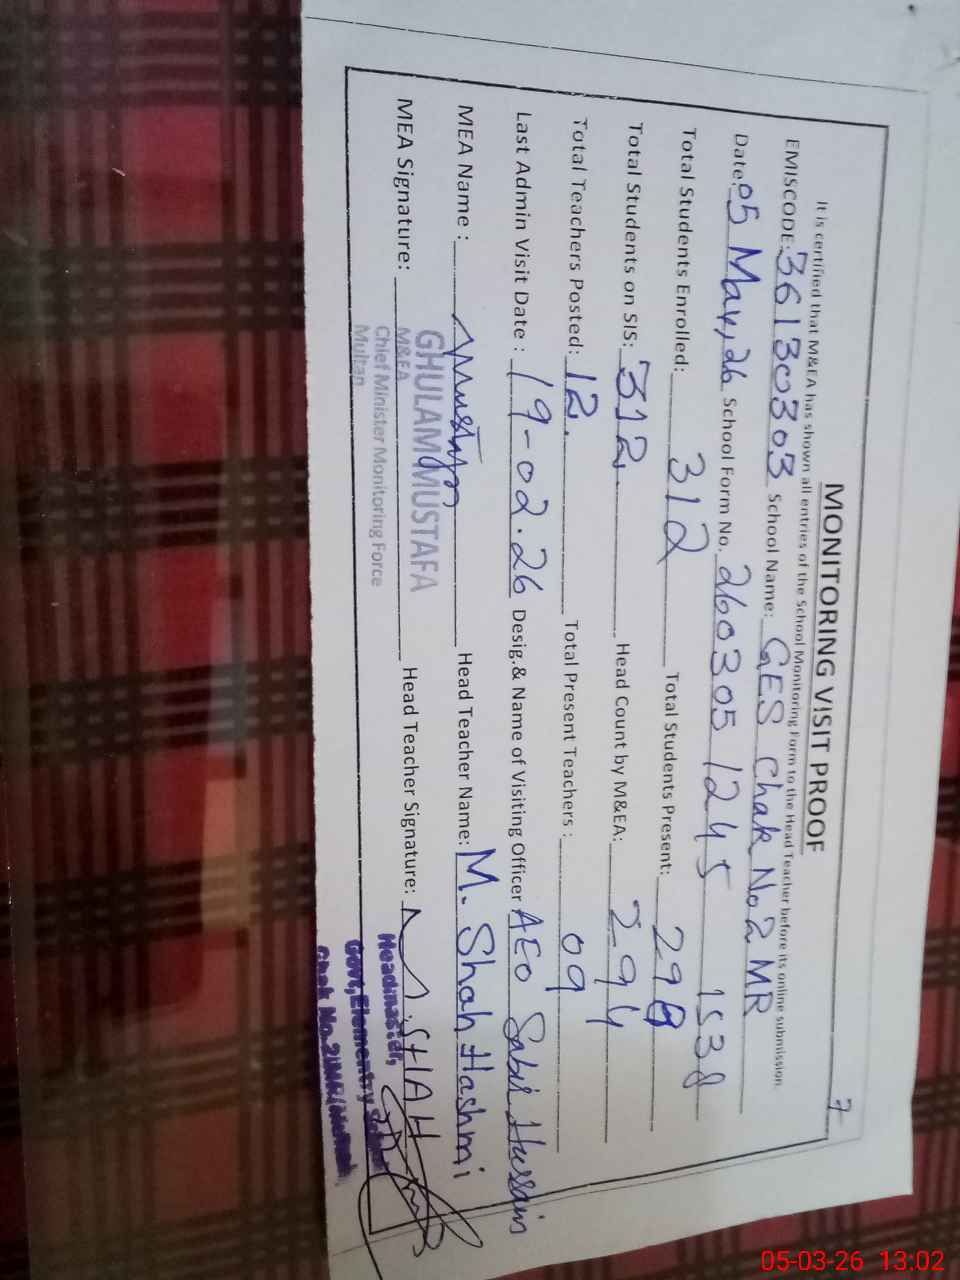 7
MONITORING VISIT PROOF
It is certified that M&EA has shown all entries of the School Monitoring Form to the Head Teacher before its online submission.
EMISCODE: 36130303 School Name: GES Chak No. 2 MR
Date: 05 May, 26 School Form No. 260305 1245 1538
Total Students Enrolled: 312 Total Students Present: 298
Total Students on SIS: 312 Head Count by M&EA: 294
Total Teachers Posted: 12 Total Present Teachers : 09
Last Admin Visit Date : 19-02.26 Desig.& Name of Visiting Officer AEO Sabir Hussain
MEA Name : Head Teacher Name: M. Shah Hashmi
GHULAM MUSTAFA
MEA Signature: Head Teacher Signature: SHAH
M&EA
Chief Minister Monitoring Force
Multan
Headmaster,
Govt, Elementry
Chak No. 2/MR
05-03-26 13:02